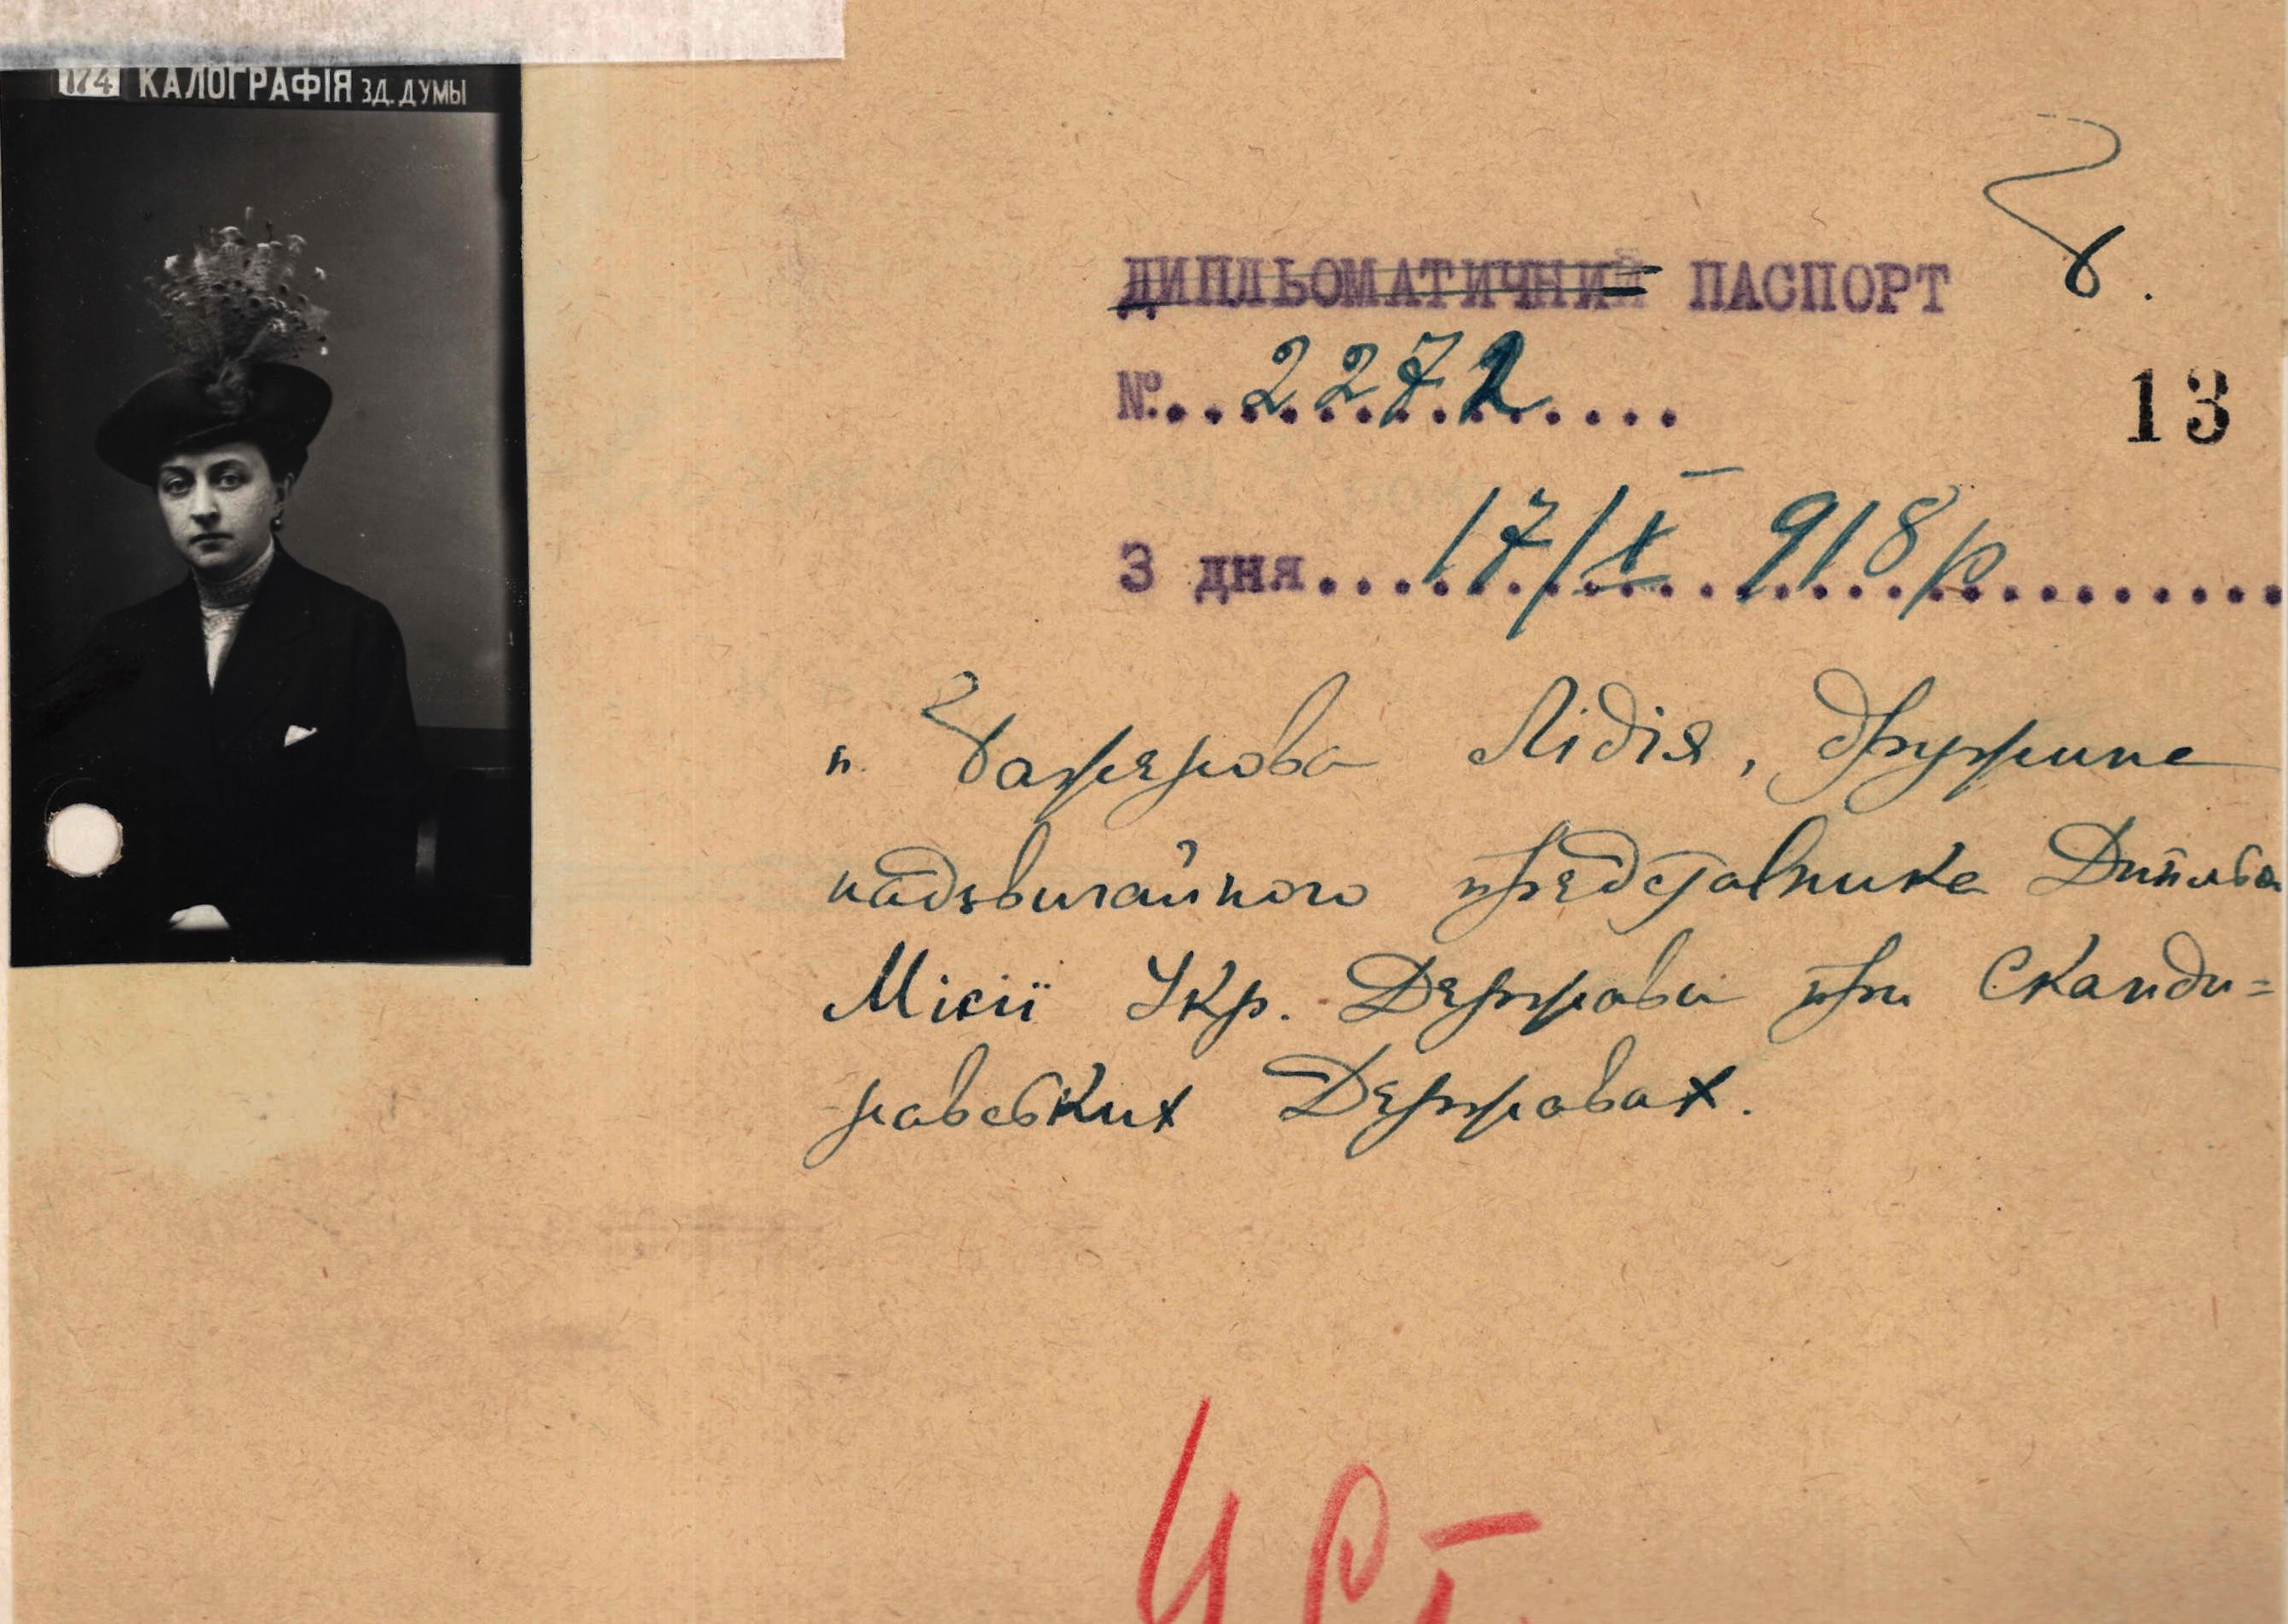 174 КАЛОГРАФІЯ ЗД. ДУМЫ
Б.
ДИПЛЬОМАТИЧНИЙ ПАСПОРТ
№. 2272
13
З дня 17/X 918 р
п. Баженова Лідія, дружина
надзвичайного представника Дипльо
Місії Укр. Держави при Сканди=
навських Державах.